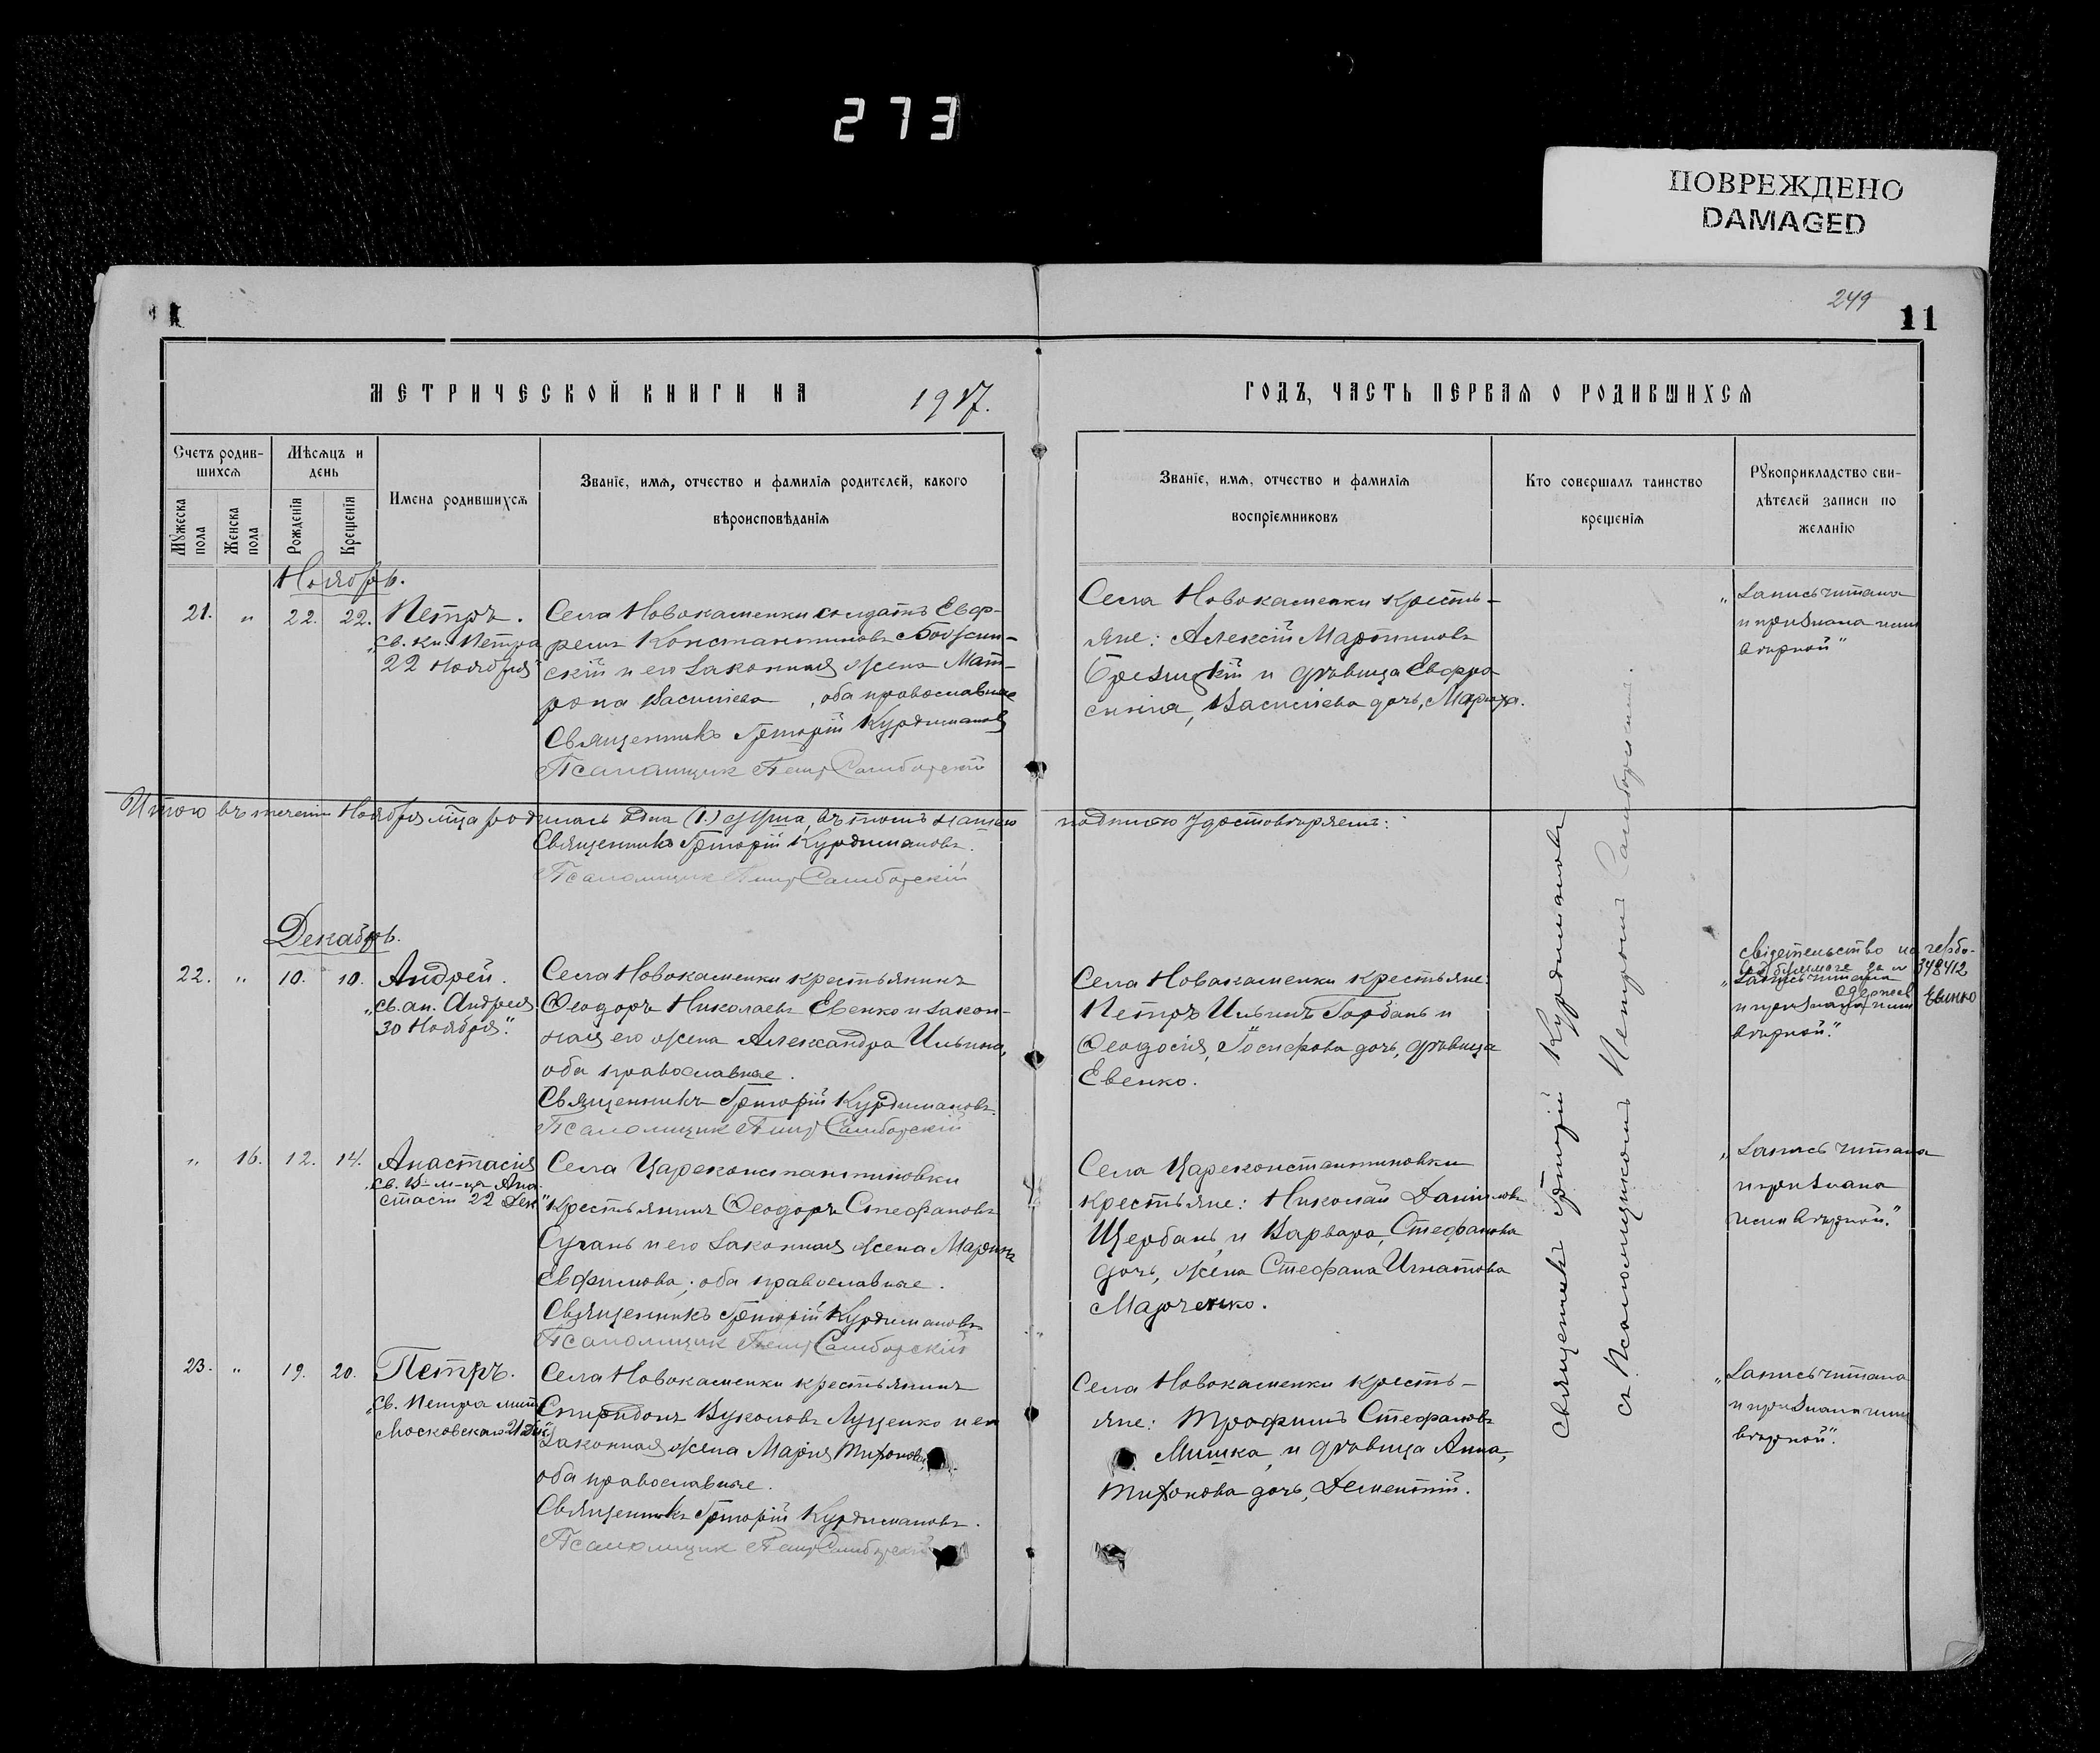 273
ПОВРЕЖДЕНО
DAMAGED
249
11
МЕТРИЧЕСКОЙ КНИГИ НА 1917.
ГОДЪ, ЧАСТЬ ПЕРВАЯ О РОДИВШИХСЯ
Счетъ родив-
шихся
Мѣсяцъ и
день
Мужеска
пола
Женска
пола
Рожденія
Крещенія
Имена родившихся
Званіе, имя, отчество и фамилія родителей, какого
вѣроисповѣданія
Званіе, имя, отчество и фамилія
воспріемниковъ
Кто совершалъ таинство
крещенія
Рукоприкладство сви-
дѣтелей записи по
желанію
Ноябрь.
21. " 22. 22. Петръ.
„Св. кн. Петра
22 Ноября"
Села Новокаменки солдатъ Евф-
ремъ Константиновъ
скій и его законная жена Мат-
рона Васильева, оба православные
Священникъ Григорій Курдимановъ
Псаломщик Петр Самборскій
Села Новокаменки кресть-
яне: Алексій Мартиновъ
и дѣвица Евфро-
синія, Васильева дочь,
„Запись читана
и признана нами
вѣрной"
Итого въ теченіи Ноября м-ца родилась одна (1) душа, въ томъ нашею подписью удостовѣряемъ:
Священникъ Григорій Курдимановъ.
Псаломщик Петр Самборскій
Декабрь.
22. " 10. 10. Андрей.
„Св. ап. Андрея
30 Ноября".
Села Новокаменки крестьянинъ
Ѳеодоръ Николаевъ Евенко и закон-
ная его жена Александра Ильина,
оба православные.
Священникъ Григорій Курдимановъ.
Псаломщик Петр Самборскій
Села Новокаменки крестьяне:
Петръ Ильинъ Горбань и
Ѳеодосія, Іосифова дочь, дѣвица
Евенко.
свідетельство на
за № 348412
одержав Евенко
„Запись читана
и признана нами
вѣрной."
" 16. 12. 14. Анастасія
„Св. В-м-ца Ана-
стасіи 22 Дек"
Села Цареконстантиновки
крестьянинъ Ѳеодоръ Стефановъ
Сугань и его законная жена Марина
Евфимова; оба православные.
Священникъ Григорій Курдимановъ
Псаломщик Петр Самборскій
Села Цареконстантиновки
крестьяне: Николай Даниловъ
Щербань, и Варвара, Стефанова
дочь, жена Стефана Игнатова
Марченко.
„Запись читана
и признана
нами вѣрной."
23. " 19. 20. Петръ.
„Св. Петра мит.
Московскаго 21
Села Новокаменки крестьянинъ
Спиридонъ Вуколовъ Луценко и его
законная жена Марія Тихонова,
оба православные.
Священникъ Григорій Курдимановъ.
Псаломщик Петр Самборскій
Села Новокаменки кресть-
яне: Трофимъ Стефановъ
Мишка, и дѣвица Анна,
Тихонова дочь, Дементій.
„Запись читана
и признана нами
вѣрной".
Священникъ Григорій Курдимановъ
съ Псаломщикомъ Петромъ Самборскимъ.